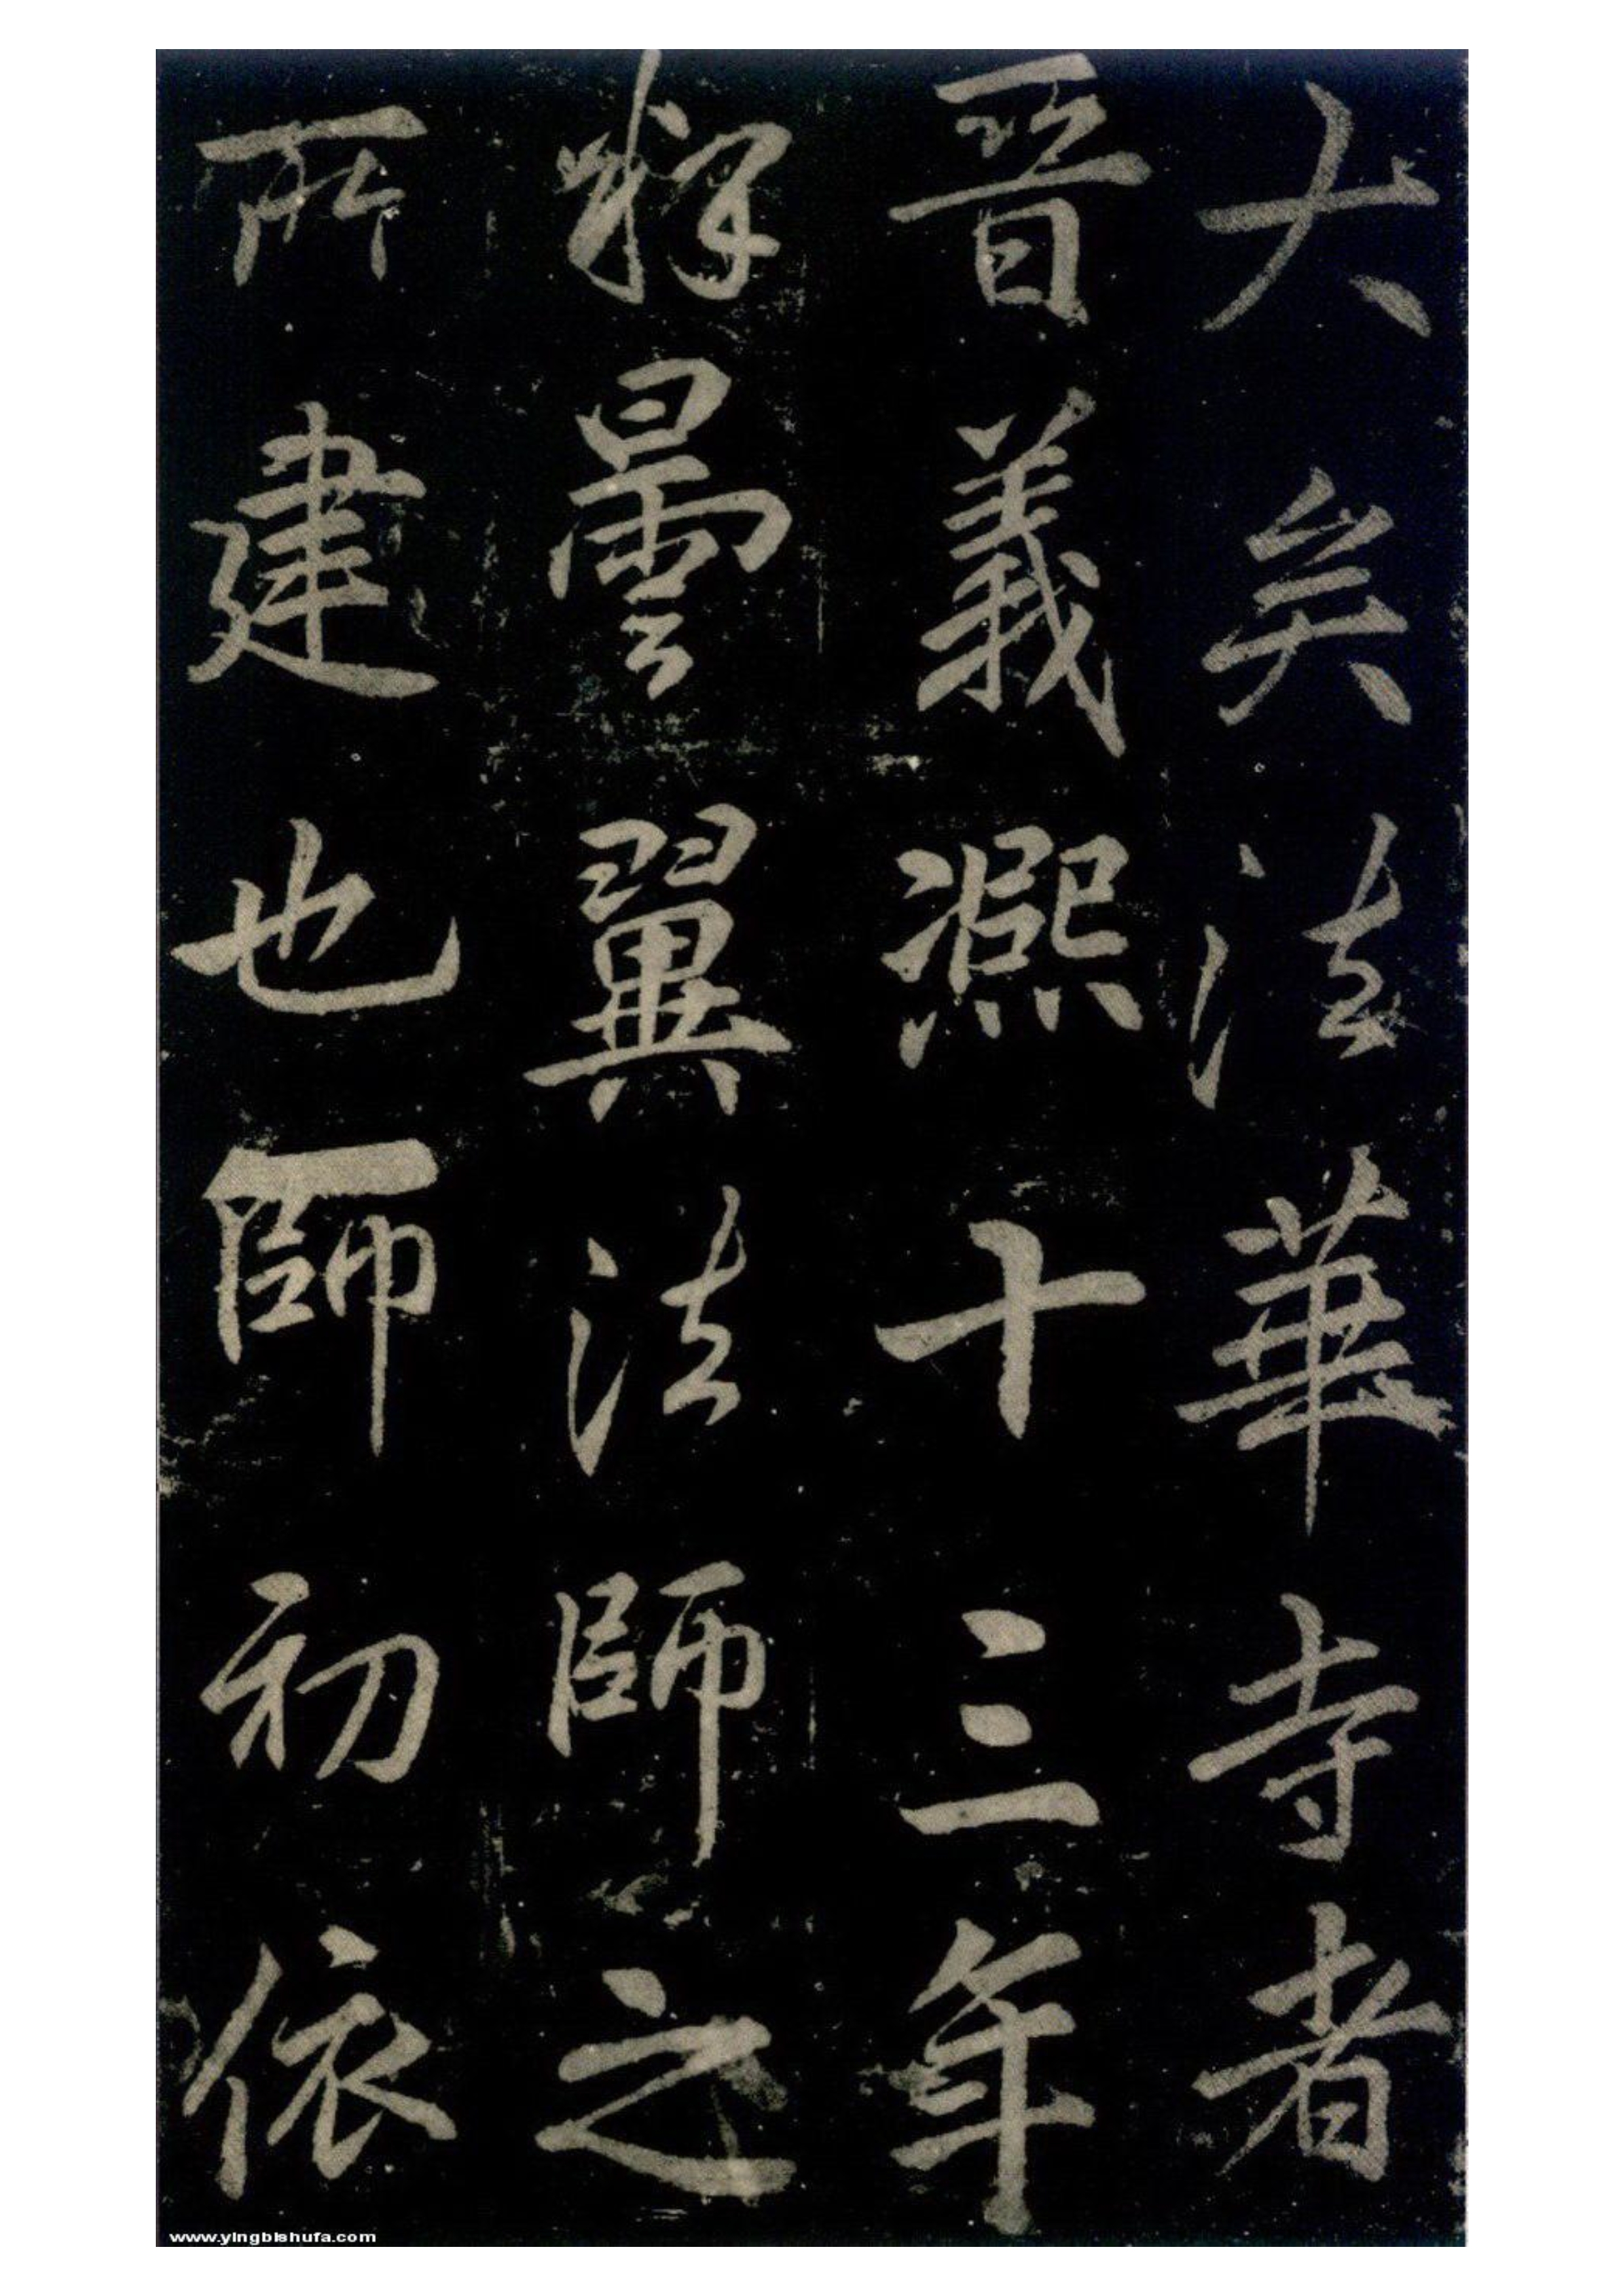 大矣法華寺者
晉義熙十三年
釋曇翼法師之
所建也師初依
www.yingbishufa.com